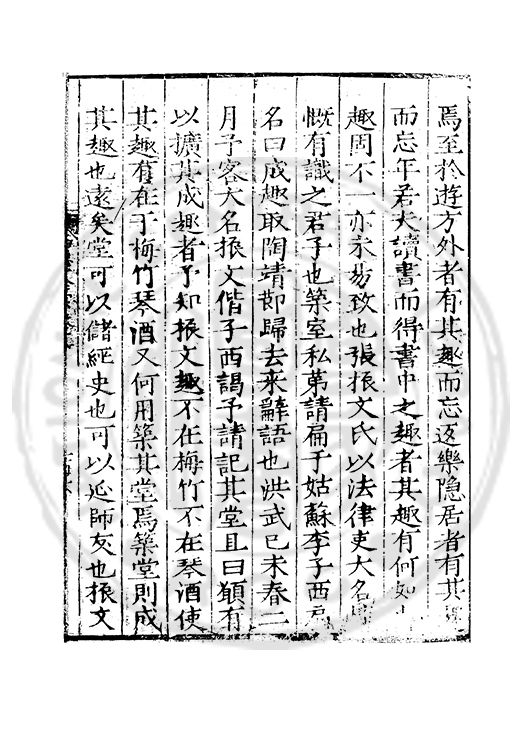 焉至於遊方外者有其趣而忘返樂隐居者有其
而忘年若夫讀書而得書中之趣者其趣有何如
趣固不一亦未易致也張振文氏以法律吏大名
慨有識之君子也築室私第請扁于姑蘇李子西
名曰成趣取陶靖節歸去來辭語也洪武己未春二
月予客大名振文偕子西謁予請記其堂且曰願有
以擴其成趣者予知振文趣不在梅竹不在琴酒使
其趣有在于梅竹琴酒又何用築其堂焉築堂則成
其趣也遠矣堂可以儲經史也可以延師友也振文